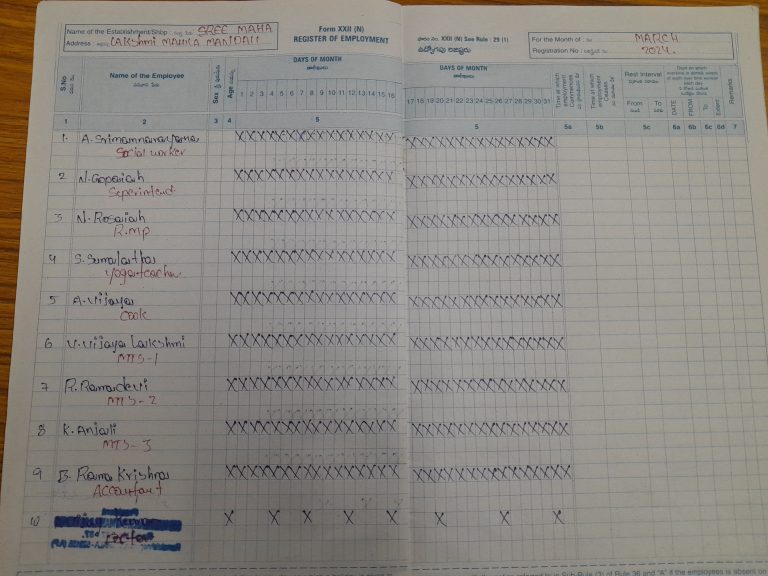 Name of the Establishment/Shop SREE MAHA
Address: LAKSHMI MAHILA MANDALI
Form XXII (N)
REGISTER OF EMPLOYMENT
ఫారం నెం. XXII (N) See Rule : 29 (1)
ఉద్యోగపు రిజిష్టరు
For the Month of : MARCH
Registration No : 2024.
S.No
Name of the Employee
Sex
Age
DAYS OF MONTH
1 2 3 4 5 6 7 8 9 10 11 12 13 14 15 16
DAYS OF MONTH
17 18 19 20 21 22 23 24 25 26 27 28 29 30 31
Time at which employment Commences
Time at which employment Ceases
Rest Interval
From To
DATE FROM To Extent
Remarks
1 2 3 4 5 5 5a 5b 5c 6a 6b 6c 6d 7
1. A. Srimannarayana XXXXXXXXXXXXXXXX XXXXXXXXXXXXXXX
Social worker
2 N. Gopaiah XXXXXXXXXXXXXXXX XXXXXXXXXXXXXXX
Seperintend
3 N. Rosaiah XXXXXXXXXXXXXXXX XXXXXXXXXXXXXXX
R.mp
4 S. Sumalatha XXXXXXXXXXXXXXXX XXXXXXXXXXXXXXX
yoga teacher
5 A. Vijaya XXXXXXXXXXXXXXXX XXXXXXXXXXXXXXX
Cook
6 V. Vijaya Lakshmi XXXXXXXXXXXXXXXX XXXXXXXXXXXXXXX
MTS-1
7 R. Ramadevi XXXXXXXXXXXXXXXX XXXXXXXXXXXXXXX
MTS-2
8 K. Anjali XXXXXXXXXXXXXXXX XXXXXXXXXXXXXXX
MTS-3
9 B. Rama Krishna XXXXXXXXXXXXXXXX XXXXXXXXXXXXXXX
Accountant
10 X X X X X X X X